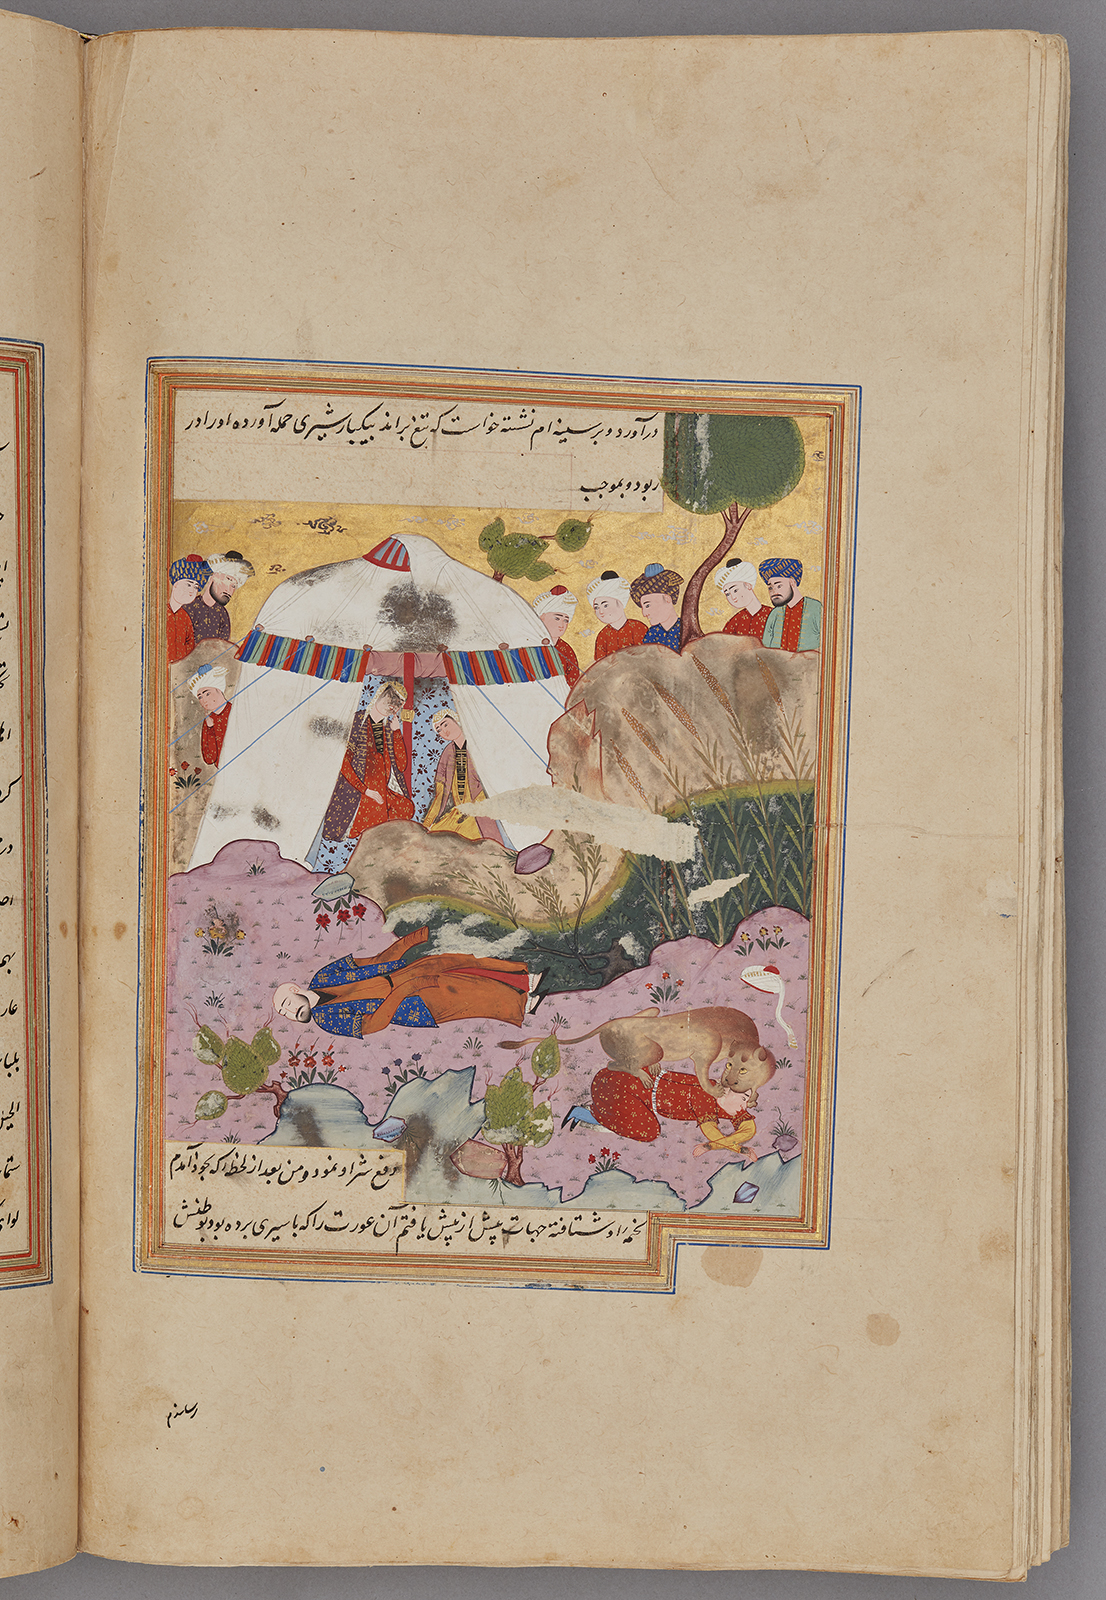 درآورد و بر سینه ام نشسته خواست که تیغ براند بیکبار شیری حمله آورده او را در
ربود و بموجب
دفع شر او نمود و من بعد از لحظه که بخود آمدم
بخیمه او شتافته جهات بیش از پیش یافتم آن عورت را که باسیری برده بود بوطنش
رساندم